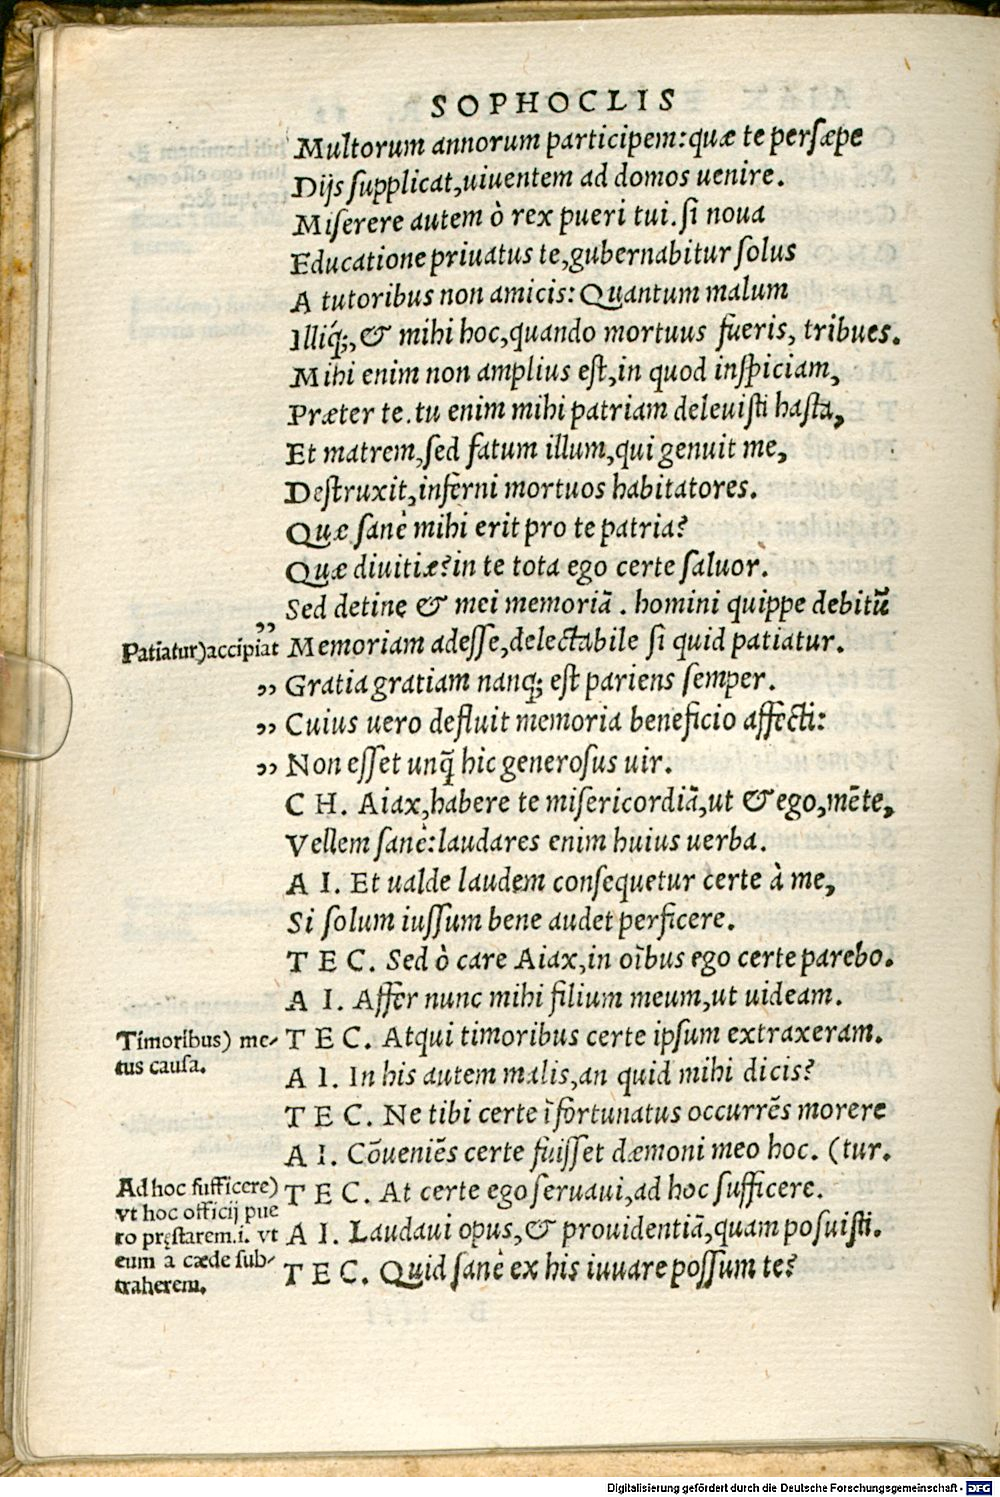 SOPHOCLIS
Multorum annorum participem: quæ te persæpe
Dijs supplicat, uiuentem ad domos uenire.
Miserere autem ò rex pueri tui. si noua
Educatione priuatus te, gubernabitur solus
A tutoribus non amicis: Quantum malum
Illiq́;, & mihi hoc, quando mortuus fueris, tribues.
Mihi enim non amplius est, in quod inspiciam,
Præter te. tu enim mihi patriam deleuisti hasta,
Et matrem, sed fatum illum, qui genuit me,
Destruxit, inferni mortuos habitatores.
Quæ sanè mihi erit pro te patria?
Quæ diuitiæ? in te tota ego certe saluor.
Sed detine & mei memoriã. homini quippe debitũ
Patiatur) accipiat
„ Memoriam adesse, delectabile si quid patiatur.
„ Gratia gratiam nanq; est pariens semper.
„ Cuius uero defluit memoria beneficio affecti:
„ Non esset unq̃ hic generosus uir.
CH. Aiax, habere te misericordiã, ut & ego, mẽte,
Vellem sanè: laudares enim huius uerba.
AI. Et ualde laudem consequetur certe à me,
Si solum iussum bene audet perficere.
TEC. Sed ò care Aiax, in oĩbus ego certe parebo.
AI. Affer nunc mihi filium meum, ut uideam.
Timoribus) me-
tus causa.
TEC. Atqui timoribus certe ipsum extraxeram.
AI. In his autem malis, an quid mihi dicis?
TEC. Ne tibi certe ĩfortunatus occurrẽs morere
AI. Cõueniẽs certe fuisset dæmoni meo hoc. (tur.
Ad hoc sufficere)
vt hoc officij pue
ro pręstarem. i. vt
eum a cæde sub-
traherem.
TEC. At certe ego seruaui, ad hoc sufficere.
AI. Laudaui opus, & prouidentiã, quam posuisti.
TEC. Quid sanè ex his iuuare possum te?
Digitalisierung gefördert durch die Deutsche Forschungsgemeinschaft - DFG